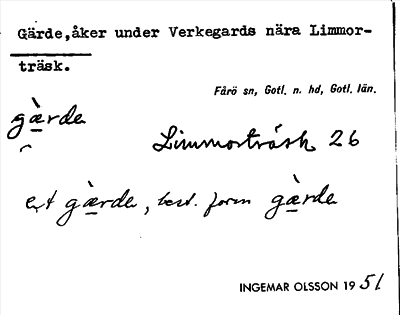 Gärde,åker under Verkegards nära Limmor-
träsk.
Fårö sn, Gotl. n. hd, Gotl. län.
gæ̀rde
Limmorträsk 26
et gæ̀rde, best. form gæ̀rde
INGEMAR OLSSON 1951